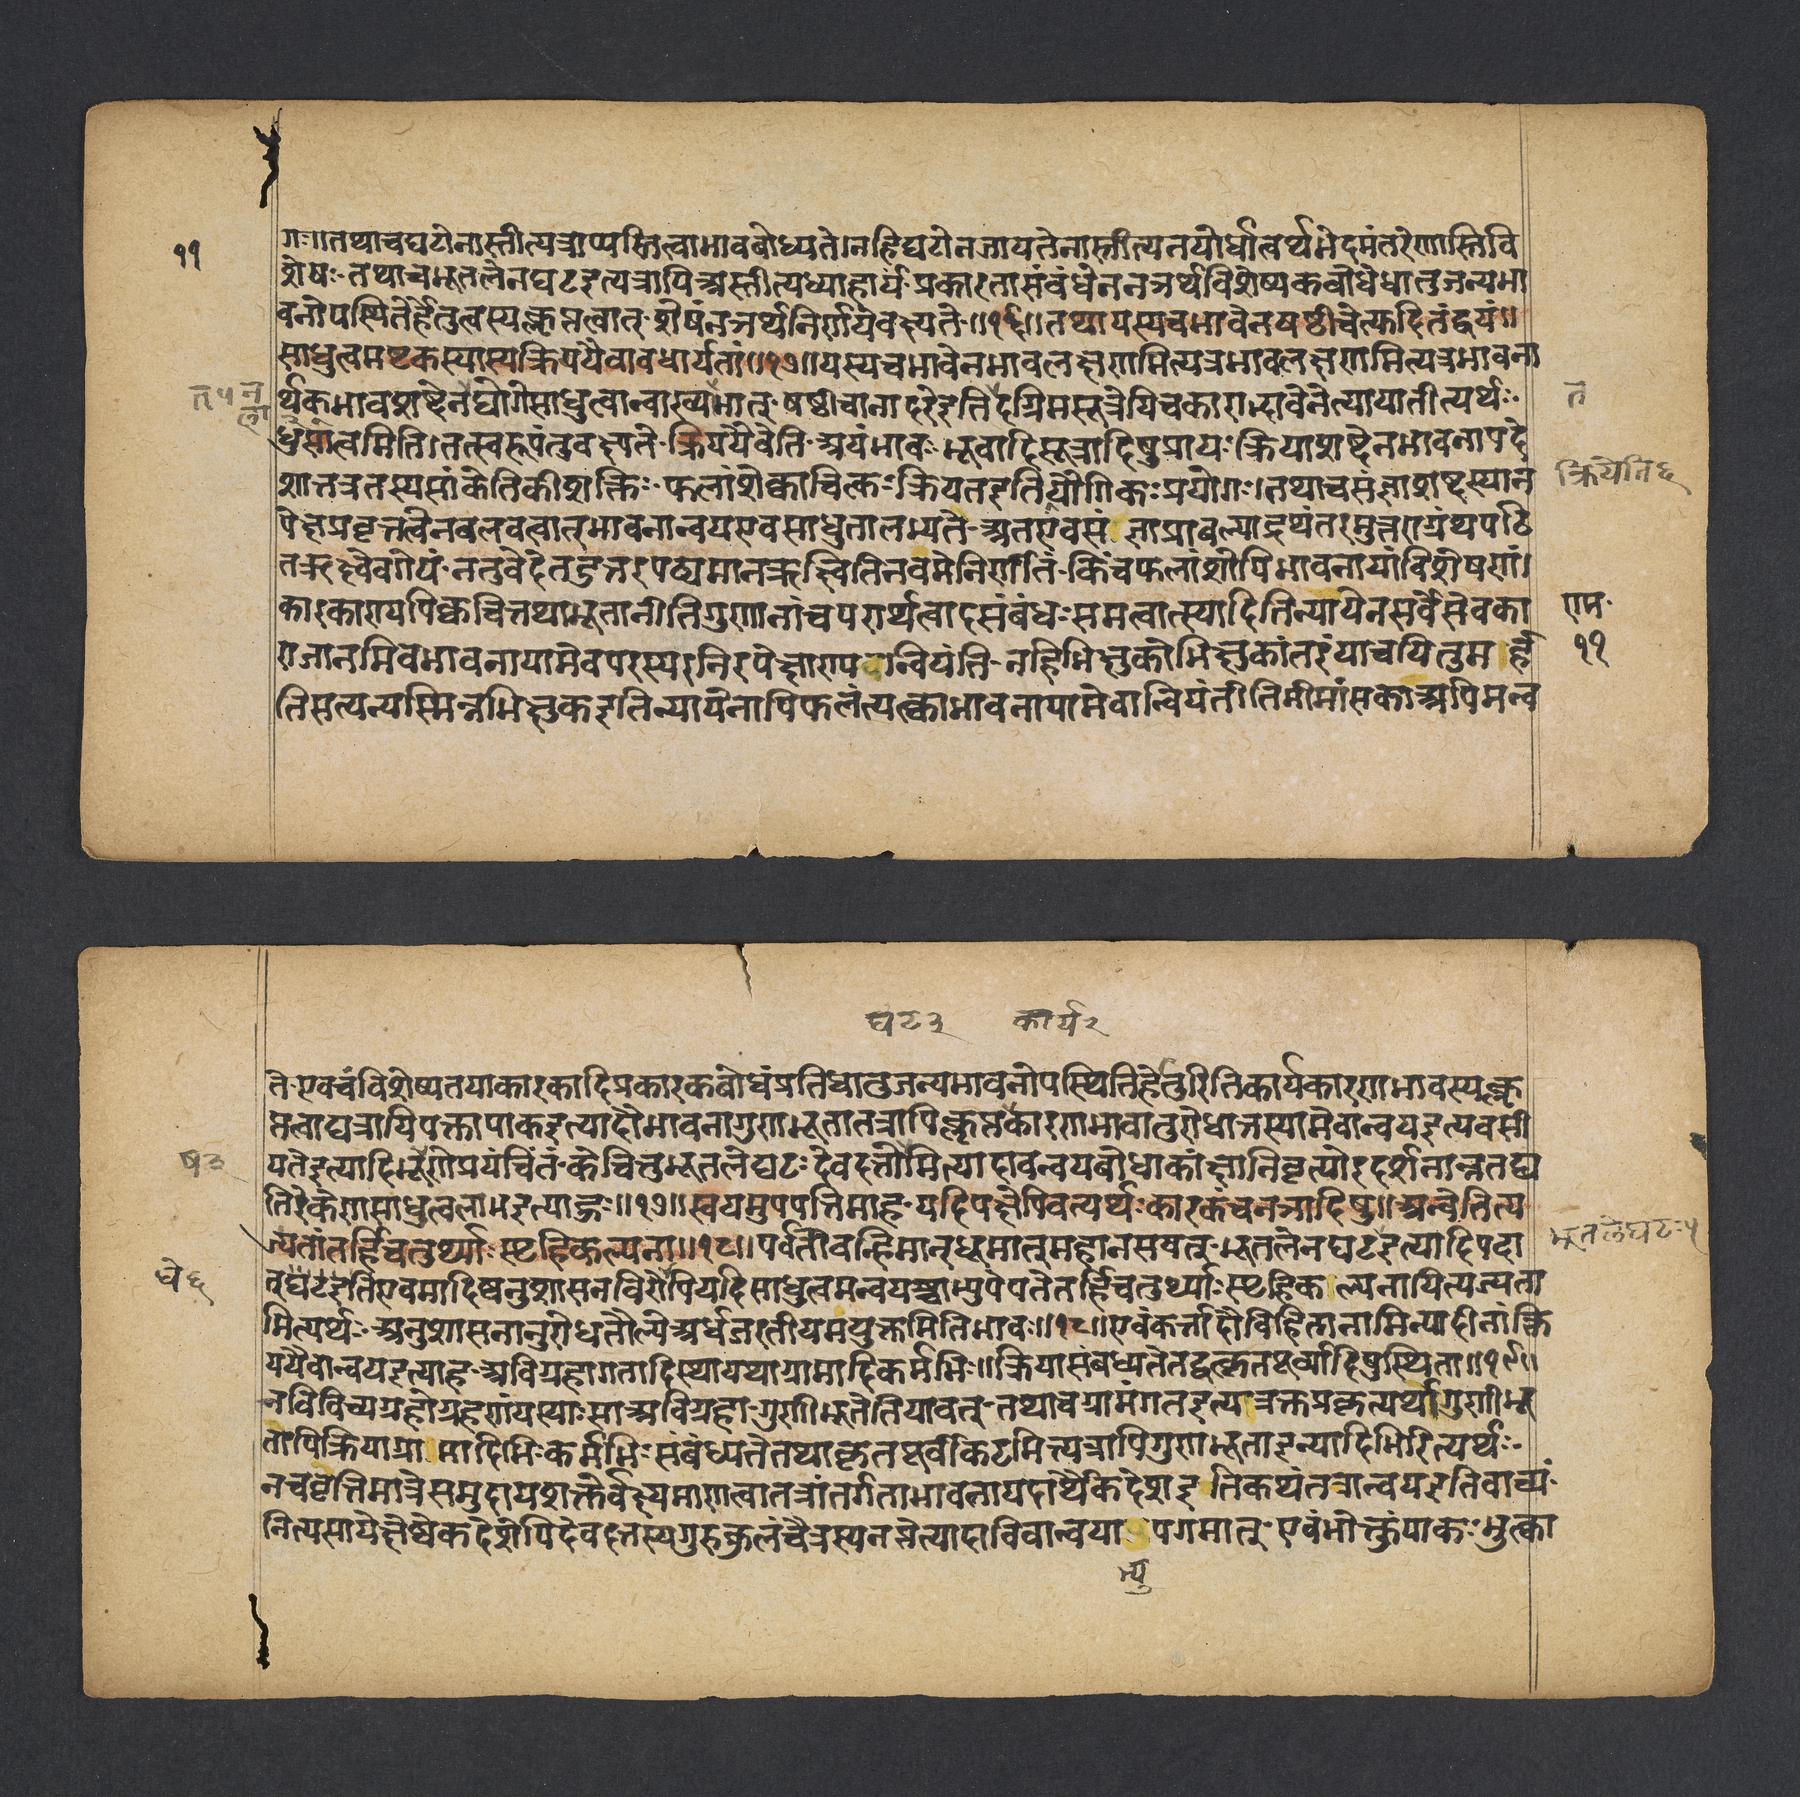 ११
गः॥तथाचघटोनास्तीत्यत्राप्यस्तित्वाभावबोध्यते।नहिघटोनजायतेनास्तीत्यनयोर्धात्वर्थभेदमंतरेणास्तिवि
शेषः॰तथाचभूतलेनघटइत्यत्रापिअस्तीत्यध्याहार्यं॰प्रकारतासंबंधेननञर्थविशेष्यकबोधेधातुजन्यभा
वनोपस्थितेर्हेतुत्वस्यक्लृप्तत्वात्॰शेषंनञर्थनिर्णयेवक्ष्यते॰॥१६॥तथायस्यचभावेनषष्ठीचेत्फदितंद्वयं॥
साधुत्वमष्टकस्यास्यक्रिययैवावधार्यतां॥१७॥यस्यचभावेनभावलक्षणमित्यत्रभावलक्षणमित्यत्रभावना
र्थकभावशब्देनघोगेसाधुत्वान्वाख्यामात्॰षष्ठीचानादरेइतिदग्रिमसूत्रेपिचकाराद्भावेनेत्यायातीत्यर्थः॰
त
धुसांत्वमिति।तत्स्वरूपंतुवक्ष्यते॰क्रिययैवेति॰अयंभावः॰भूवादिसूत्रादिषुप्रायः॰क्रियाशब्देनभावनापदे
शात्तत्रतस्यसांकेतिकीशक्तिः॰फलांशेक्वाचित्कः॰क्रियतइतियौगिकःप्रयोगः।तथाचसंज्ञाशब्दस्यान
क्रियेति६
पेक्षप्रवृत्तत्वेनबलवत्वात्भावनान्वयएवसाधुतालभ्यते॰अतएवसं ज्ञाप्राबल्याद्रथंतरमुत्तराग्रंथपठि
तऋक्ष्वेवगेयं॰नतुवेदेतदुत्तरपठ्यमानऋक्ष्वितिनवमेनिर्णीतं॰किंचफलांशोपिभावनायांविशेषणं।
कारकाण्यपिक्वचित्तथाभूतानीतिगुणानांचपरार्थत्वादसंबंधःसमत्वात्स्यादितिन्यायेनसर्वेसेवका
राम॰
११
राजानमिवभावनायामेवपरस्परनिरपेक्षाण्य न्वियंति॰नहिभिक्षुकोभिक्षुकांतरंयाचयितुमर्ह
तिसत्यन्यस्मिन्नभिक्षुकइतिन्यायेनापिफलंत्यत्काभावनायामेवान्वियंतीतिमीमांसकाअपिमन्व
घट३ कार्य२
ते॰एवंचविशेष्यतयाकारकादिप्रकारकबोधंप्रतिधातुजन्यभावनोपस्थितिर्हेतुरितिकार्यकारणभावस्यक्लृ
प्तत्वाद्यत्रापिपक्तापाकइत्यादौभावनागुणभूतातत्रापिक्लृप्तकारणभावानुरोधात्तस्यामेवान्वयइत्यवसी
यतेइत्यादिभूषणेप्रपंचितं॰केचित्तुभूतलेघटःदेवदत्तोमित्यादावन्वयबोधाकांक्षानिवृत्योरदर्शनान्नतद्य
तिरेकेणसाधुत्वलाभइत्याहुः॥१७॥स्वयमुपपत्तिमाह॰यदिपक्षेपिवत्यर्थः॰कारकंचनञादिषु॥अन्वेतित्य
ज्यतांतर्हिचतुर्थ्याःस्पृहिकल्पना॥१८॥पर्वतोवन्हिमान्धूमात्महानसवत्॰भूतलेनघटइत्यादिपदा
भूतलेघटः५
घे६
त्घटइतिएवमादिष्वनुशासनविरोपियदिसाधुत्वमन्वयश्चाभ्युपेपतेतर्हिचतुर्थ्याःस्पृहिक ल्पनायित्यज्यता
मित्यर्थः॰अनुशासनानुरोधतौल्येअर्धजरतीयमयुक्तमितिभावः॥१८॥एवंकर्त्तादौविहितानामिन्यादीनांक्रि
ययैवान्वयइत्याह॰अविग्रहागतादिस्थायथाग्रामादिकर्मभिः॥क्रियासंबध्यतेतद्वत्कृतपूर्व्यादिषुस्थिता॥१९॥
नविविच्यग्रहोग्रहणंयस्याःसाअविग्रहा॰गुणीभूतेतियावत्॰तथाचग्रामंगतइत्यात्रक्तप्रकृत्यर्थागुणीभू
तापिक्रियाग्रा मादिभिःकर्मभिः॰संबंध्यतेतथाकृतपूर्वीकटमित्यत्रापिगुणभूताइन्यादिभिरित्यर्थः॰
नचवृत्तिमात्रेसमुदायशक्तेर्वक्ष्यमाणत्वातत्रांतर्गताभावनापदार्थैकदेशइ तिकथंतत्रान्वयइतिवाच्यं॰
नित्यसापेक्षेष्वेकदेशेपिदेवदत्तस्यगुरुकुलंचैत्रस्यनप्तेत्यादाविवान्वया पगमात्॰एवंभोक्तुंपाकः॰भुत्का
भ्यु